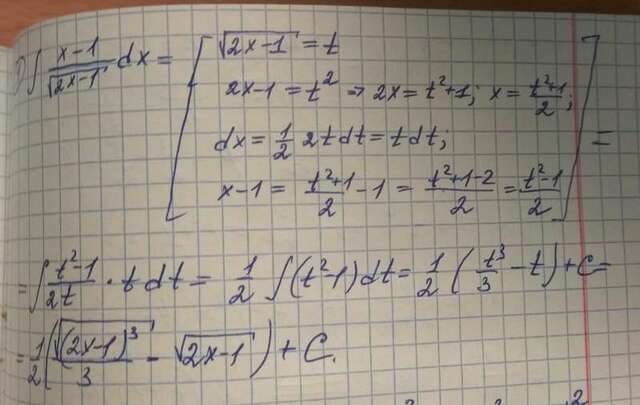 ∫ (x-1)/√(2x-1) dx = [ √(2x-1) = t
2x-1 = t² → 2x = t²+1; x = (t²+1)/2;
dx = 1/2 2t dt = t dt;
x-1 = (t²+1)/2 - 1 = (t²+1-2)/2 = (t²-1)/2 ] =
= ∫ (t²-1)/2t · t dt = 1/2 ∫(t²-1)dt = 1/2 (t³/3 - t) + C =
= 1/2 (√((2x-1)³)/3 - √(2x-1)) + C.